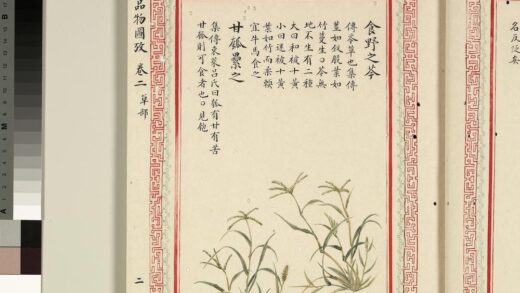 食野之芩
傳芩草也集傳
莖如釵股葉如
竹蔓生○芩無
地不生有二種
大曰和被十黃
小曰被十黃
葉如竹而柔輭
宜牛馬食之
甘瓠纍之
集傳東萊呂氏曰瓠有甘有苦
甘瓠則可食者也○見匏
品物圖攷 卷二 草部 二